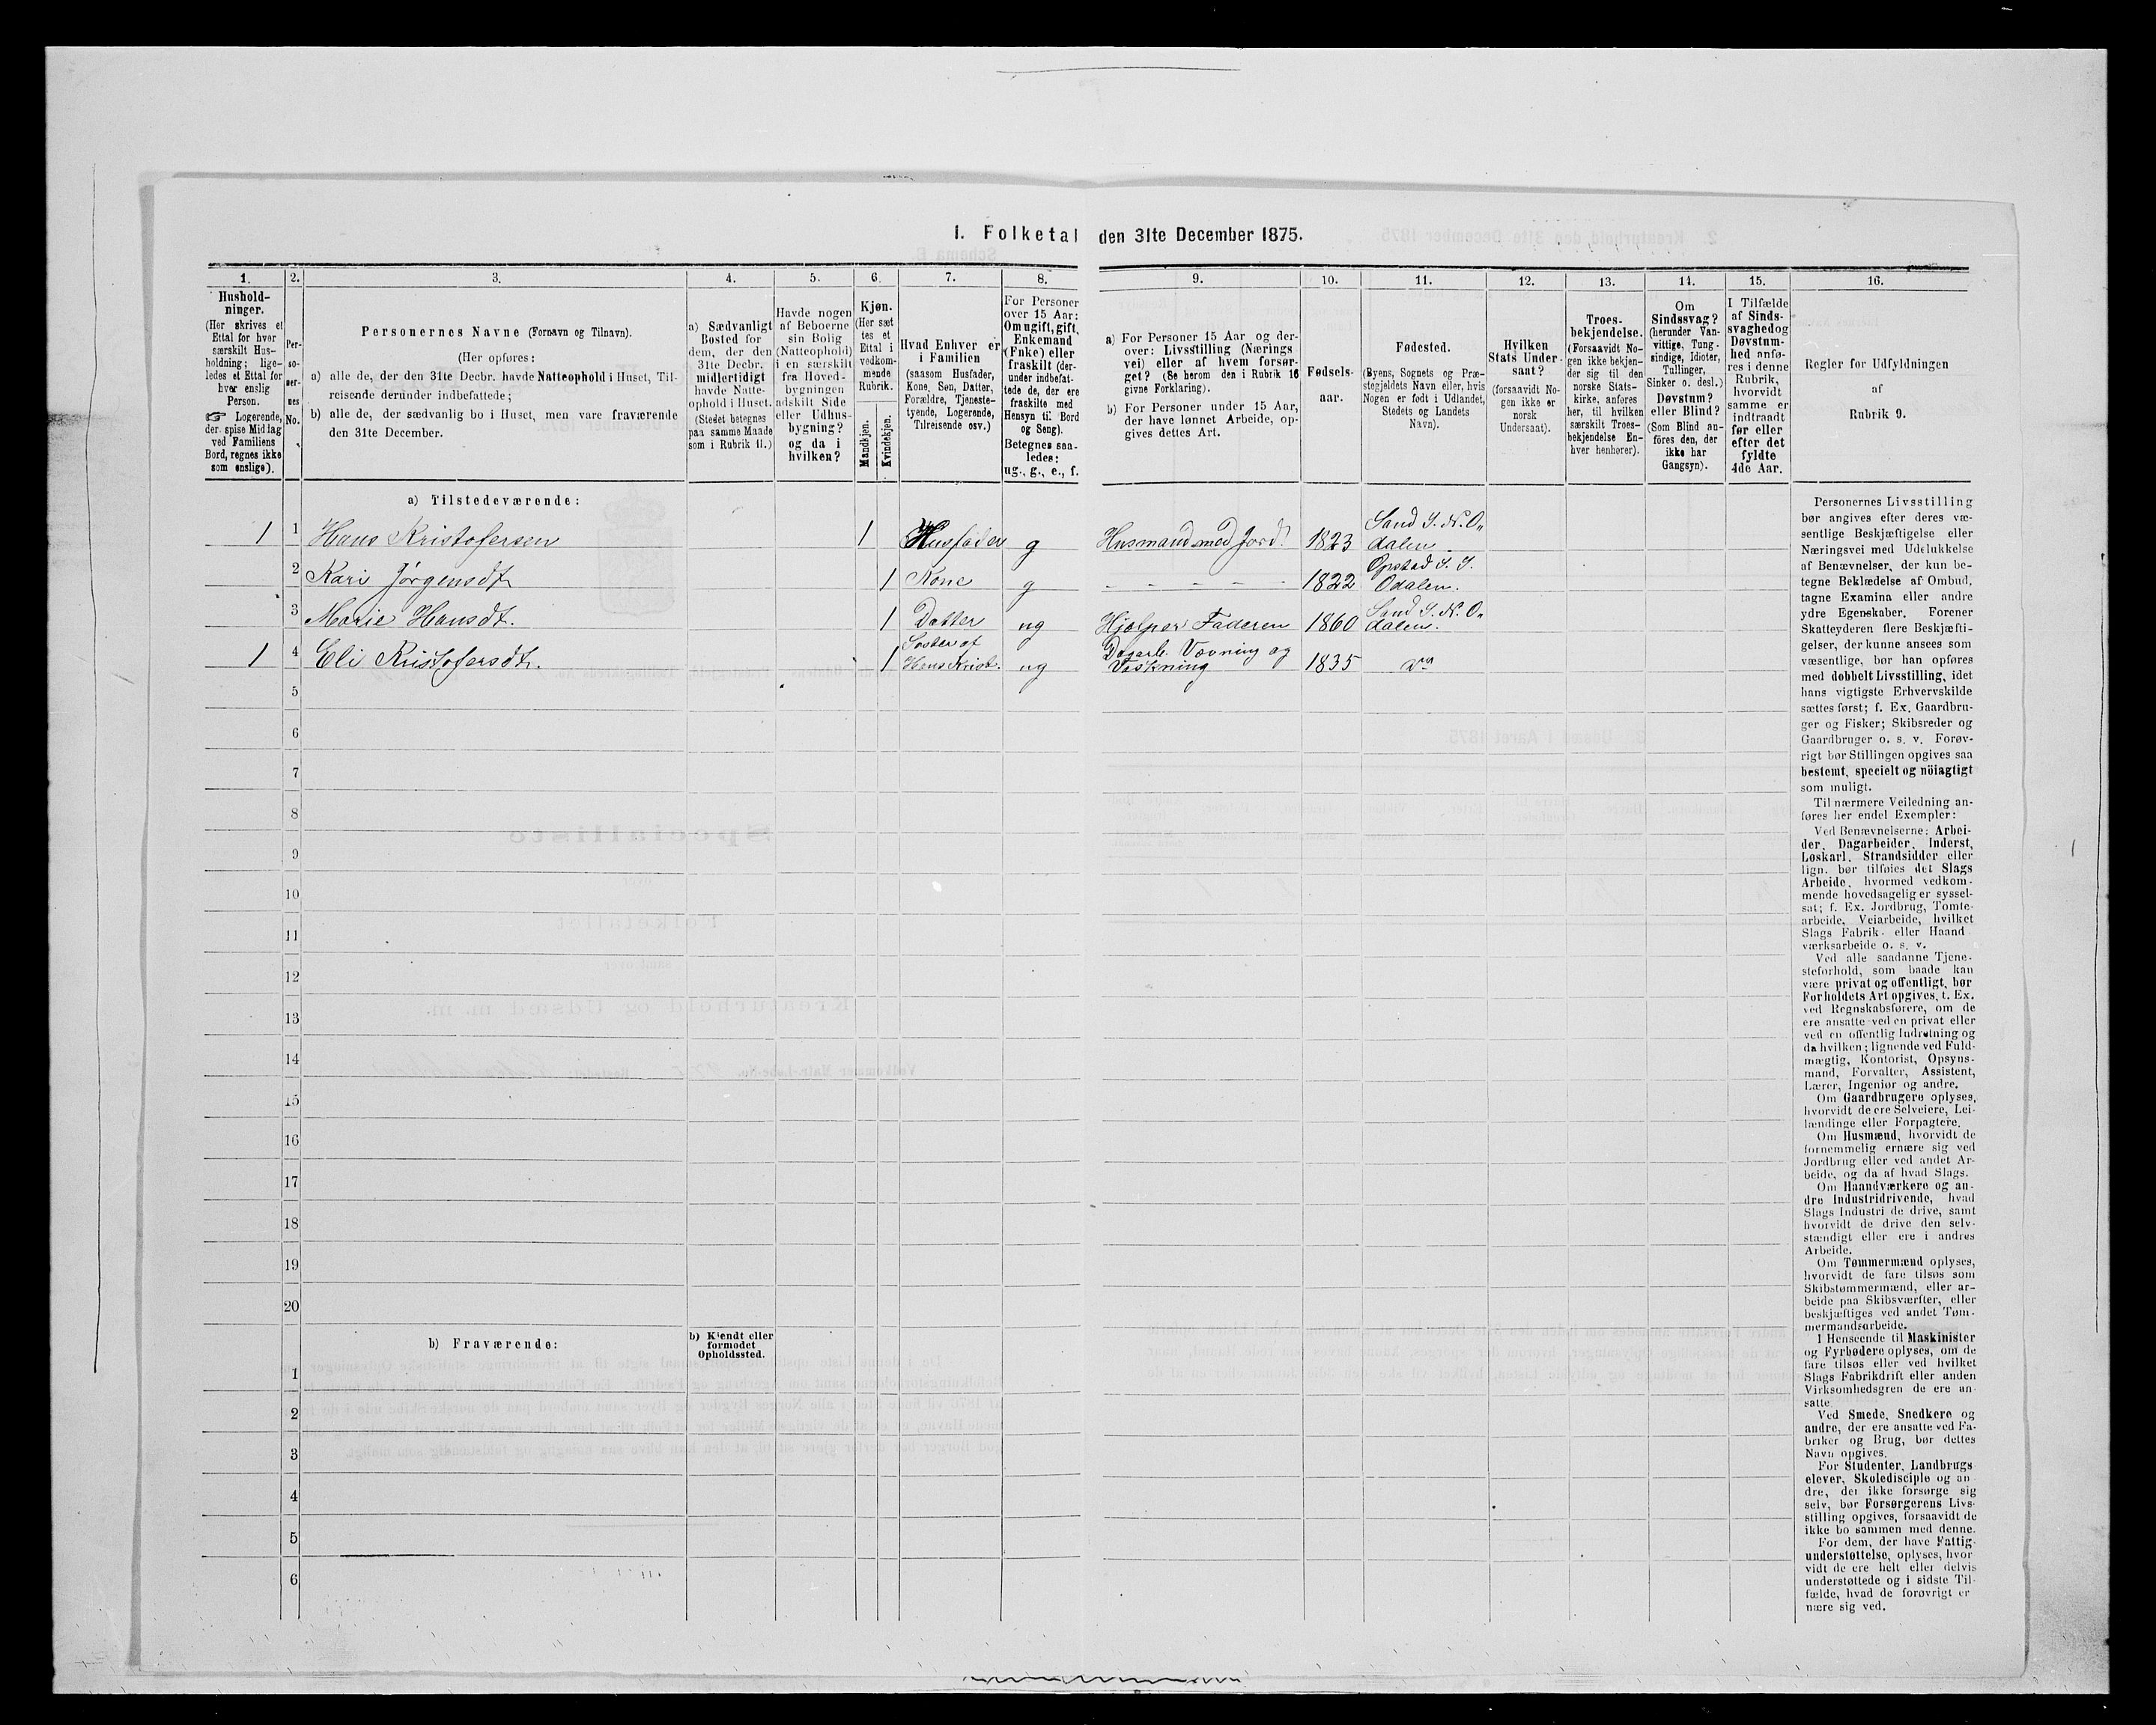 1. Folketal den 31te December 1875.
1.
Hushold-
ninger.
(Her skrives et
Ettal for hver
særskilt Hus-
holdning; lige-
ledes et Ettal for
hver enslig
Person.
☞ Logerende,
der spise Middag
ved Familiens
Bord, regnes ikke
som enslige).
2.
Per-
so-
ner-
nes
No.
3.
Personernes Navne (Fornavn og Tilnavn).
(Her opføres:
a) alle de, der den 31te Decbr. havde Natteophold i Huset, Til-
reisende derunder indbefattede;
b) alle de, der sædvanlig bo i Huset, men vare fraværende
den 31te December.
4.
a) Sædvanligt
Bosted for
dem, der den
31te Decbr.
midlertidigt
havde Natte-
ophold i Huset.
(Stedet betegnes
paa samme Maade
som i Rubrik 11.)
5.
Havde nogen
af Beboerne
sin Bolig
(Natteophold)
i en særskilt
fra Hoved-
bygningen
adskilt Side
eller Udhus-
bygning?
og da i
hvilken?
6.
Kjøn.
(Her sæt
tes et
Ettal i
vedkom-
mende
Rubrik.
Mandkjøn.
Kvindekjøn.
7.
Hvad Enhver er
i Familien
(saasom Husfader,
Kone, Søn, Datter,
Forældre, Tjeneste-
tyende, Logerende,
Tilreisende osv.)
8.
For Personer
over 15 Aar:
Om ugift, gift,
Enkemand
(Enke) eller
fraskilt (der-
under indbefat-
tede de, der ere
fraskilte med
Hensyn til Bord
og Seng).
Betegnes saa-
ledes:
ug., g., e., f.
9.
a) For Personer 15 Aar og der-
over: Livsstilling (Nærings
vei) eller af hvem forsør-
get? (Se herom den i Rubrik 16
givne Forklaring).
b) For Personer under 15 Aar,
der have lønnet Arbeide, op-
gives dettes Art.
10.
Fødsels-
aar.
11.
Fødested.
(Byens, Sognets og Præ-
stegjeldets Navn eller, hvis
Nogen er født i Udlandet,
Stedets og Landets
Navn).
12.
Hvilken
Stats Under-
saat?
(forsaavidt No-
gen ikke er
norsk
Undersaat).
13.
Troes-
bekjendelse.
(Forsaavidt No-
gen ikke bekjen-
der sig til den
norske Stats-
kirke, anføres
her, til hvilken
særskilt Troes-
bekjendelse En-
hver henhører).
14.
Om
Sindssvag?
(herunder Van-
vittige, Tung-
sindige, Idioter,
Tullinger,
Sinker o. desl.)
Døvstum?
eller Blind?
(Som Blind an-
föres den, der
ikke har
Gangsyn).
15.
I Tilfælde
af Sinds-
svaghed og
Døvstum-
hed anfø-
res i denne
Rubrik,
hvorvidt
samme er
indtraadt
før eller
efter det
fyldte
4de Aar.
16.
Regler for Udfyldningen
af
Rubrik 9.
a) Tilstedeværende:
1 1 Hans Kristofersen 1 Husfader g Husmand med Jord. 1823 Sand S. N. O„
dalen.
2 Kari Jørgensdt 1 Kone g – – – – – 1822 Opstad S. S.
Odalen.
3 Marie Hansdt. 1 Datter ug Hjælper Faderen 1860 Sand S. N. O„
dalen.
1 4 Eli Kristofersdt. 1 Søster af
Hans Krist. ug Dagarb. Vævning og
Vaskning 1835 do
5
6
7
8
9
10
11
12
13
14
15
16
17
18
19
20
b) Fraværende:
b) Kjendt eller
formodet
Opholdssted.
1
2
3
4
5
6
Personernes Livsstilling
bør angives efter deres væ-
sentlige Beskjæftigelse eller
Næringsvei med Udelukkelse
af Benævnelser, der kun be-
tegne Beklædelse af Ombud,
tagne Examina eller andre
ydre Egenskaber. Forener
Skatteyderen flere Beskjæfti-
gelser, der kunne ansees som
væsentlige, bør han opføres
med dobbelt Livsstilling, idet
hans vigtigste Erhvervskilde
sættes først; f. Ex. Gaardbru-
ger og Fisker; Skibsreder og
Gaardbruger o. s. v. Forøv-
rigt bør Stillingen opgives saa
bestemt, specielt og nöiagtigt
som muligt.
Til nærmere Veiledning an-
føres her endel Exempler:
Ved Benævnelserne: Arbei-
der, Dagarbeider, Inderst,
Løskarl, Strandsidder eller
lign. bør tilføies det Slags
Arbeide, hvormed vedkom-
mende hovedsagelig er syssel-
sat; f. Ex. Jordbrug, Tomte-
arbeide, Veiarbeide, hvilket
Slags Fabrik- eller Haand
værksarbeide o. s. v.
Ved alle saadanne Tjene-
steforhold, som baade kan
være privat og offentligt, bør
Forholdets Art opgives, t. Ex.
ved Regnskabsførere, om de
ere ansatte ved en privat eller
ved en offentlig Indretning og
da hvilken; lignende ved Fuld-
mægtig, Kontorist, Opsyns-
mand, Forvalter, Assistent,
Lærer, Ingeniør og andre.
Om Gaardbrugere oplyses,
hvorvidt de ere Selveiere, Lei-
lændinge eller Forpagtere.
Om Husmænd, hvorvidt de
fornemmelig ernære sig ved
Jordbrug eller ved andet Ar-
beide, og da af hvad Slags.
Om Haandværkere og an-
dre Industridrivende, hvad
Slags Industri de drive, samt
hvorvidt de drive den selv-
stændigt eller ere i andres
Arbeide.
Om Tømmermænd oplyses,
hvorvidt de fare tilsøs som
Skibstømmermænd, eller ar-
beide paa Skibsværfter, eller
beskjæftiges ved andet Tøm-
mermandsarbeide.
I Henseende til Maskinister
og Fyrbødere oplyses, om de
fare tilsøs eller ved hvilket
Slags Fabrikdrift eller anden
Virksomhedsgren de ere an-
satte
Ved Smede, Snedkere og
andre, der ere ansatte ved Fa-
briker og Brug, bør dettes
Navn opgives.
For Studenter, Landbrugs
elever, Skoledisciple og an
dre, der ikke forsørge sig
selv, bør Forsørgerens Livs-
stilling opgives, forsaavidt de
ikke bo sammen med denne.
For dem, der have Fattig-
understøttelse, oplyses, hvor
vidt de ere helt eller delvis
understøttede og i sidste Til-
fælde, hvad de forøvrigt er
nære sig ved.